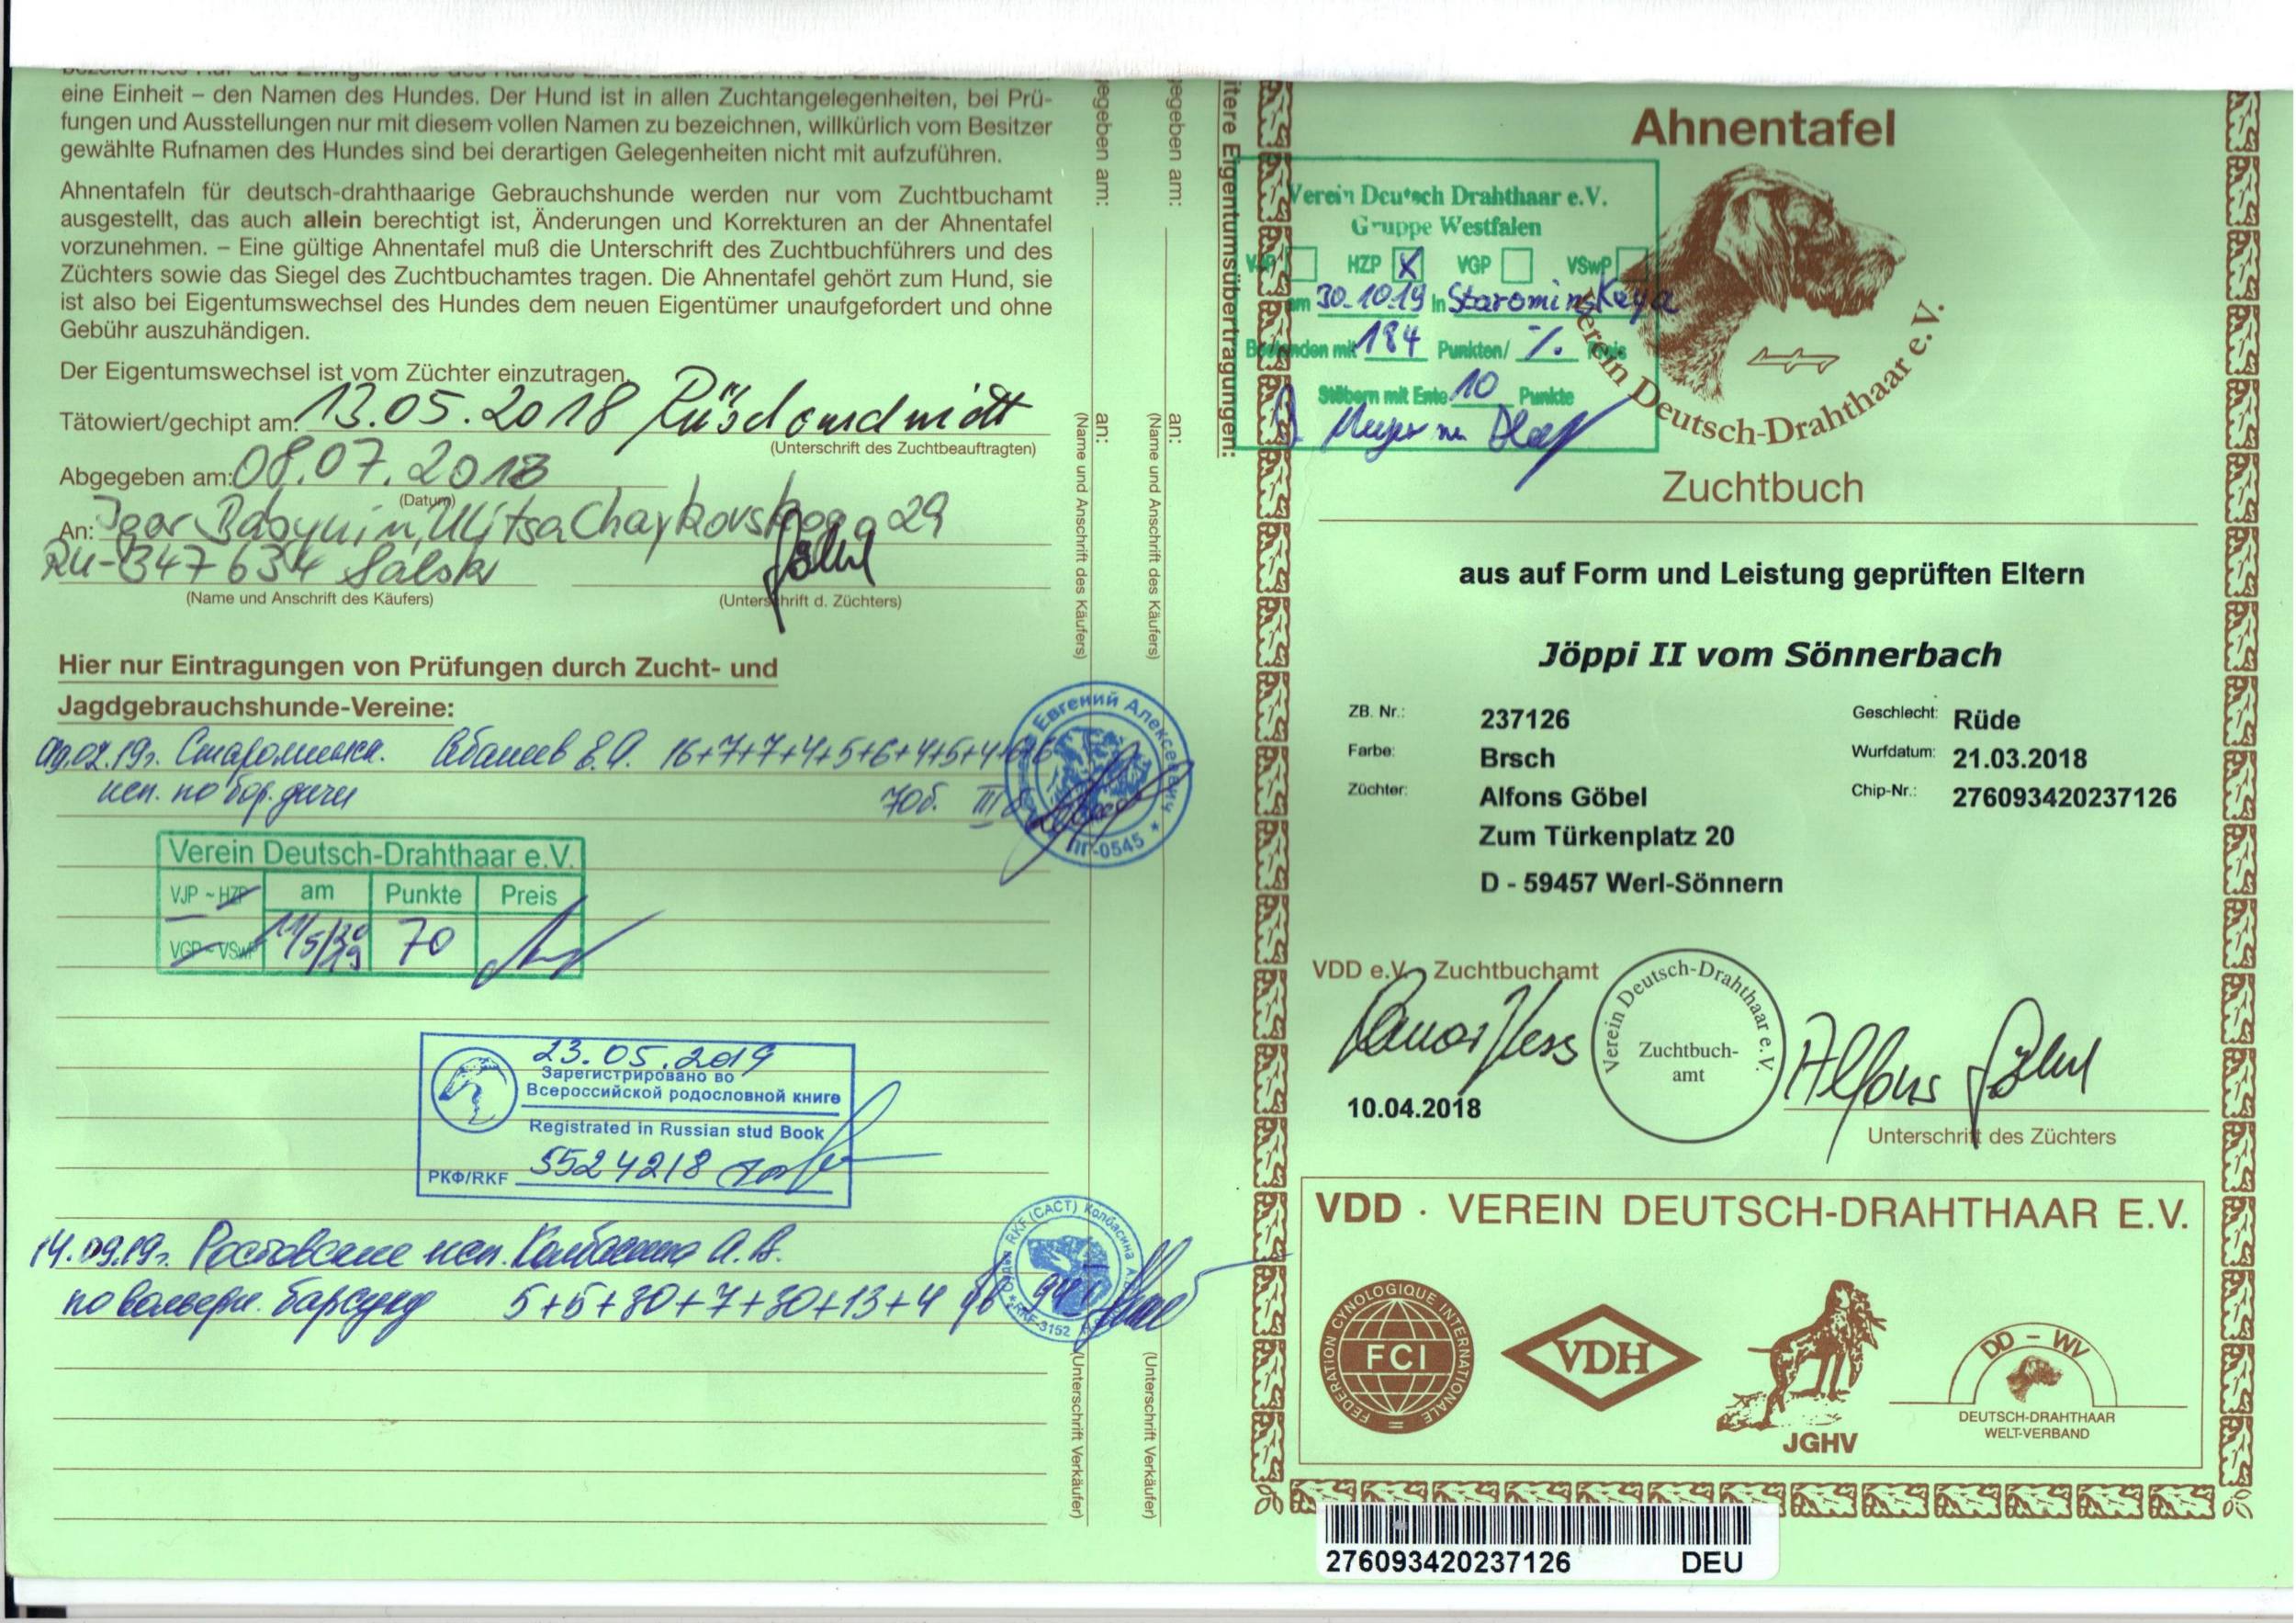 eine Einheit – den Namen des Hundes. Der Hund ist in allen Zuchtangelegenheiten, bei Prü-
fungen und Ausstellungen nur mit diesem vollen Namen zu bezeichnen, willkürlich vom Besitzer
gewählte Rufnamen des Hundes sind bei derartigen Gelegenheiten nicht mit aufzuführen.
Ahnentafeln für deutsch-drahthaarige Gebrauchshunde werden nur vom Zuchtbuchamt
ausgestellt, das auch allein berechtigt ist, Änderungen und Korrekturen an der Ahnentafel
vorzunehmen. – Eine gültige Ahnentafel muß die Unterschrift des Zuchtbuchführers und des
Züchters sowie das Siegel des Zuchtbuchamtes tragen. Die Ahnentafel gehört zum Hund, sie
ist also bei Eigentumswechsel des Hundes dem neuen Eigentümer unaufgefordert und ohne
Gebühr auszuhändigen.
Der Eigentumswechsel ist vom Züchter einzutragen.
Tätowiert/gechipt am: 13.05.2018
(Unterschrift des Zuchtbeauftragten)
Abgegeben am: 08.07.2018
(Datum)
An: Igor Ulitsa Chaykovskogo 29
RU-347634 Salsk
(Name und Anschrift des Käufers)
(Unterschrift d. Züchters)
Hier nur Eintragungen von Prüfungen durch Zucht- und
Jagdgebrauchshunde-Vereine:
16+7+7+4+5+6+4+5+4+6+6
исп. по бор. дичи 70б. III
Евгений Алексеевич
ПГ-0545
Verein Deutsch-Drahthaar e.V.
VJP ~ HZP am Punkte Preis
VGP ~ VSwP 11/5/2019 70
23.05.2019
Зарегистрировано во
Всероссийской родословной книге
Registrated in Russian stud Book
РКФ/RKF 5524218
14.09.19г. Ростовские исп. Колбасина А.В.
по вольерн. барсуку 5+5+30+7+30+13+4 94
RKF (CACT) Колбасина
RKF-3152
egeben am:
an:
(Name und Anschrift des Käufers)
(Unterschrift Verkäufer)
geben am:
an:
(Name und Anschrift des Käufers)
(Unterschrift Verkäufer)
itere Eigentumsübertragungen:
Ahnentafel
Verein Deutsch Drahthaar e.V.
Gruppe Westfalen
VJP HZP X VGP VSwP
am 30.10.19 in Starominskaya
Bestanden mit 184 Punkten/ ⁒ Preis
Stöbern mit Ente 10 Punkte
Verein Deutsch-Drahthaar e.V.
Zuchtbuch
aus auf Form und Leistung geprüften Eltern
Jöppi II vom Sönnerbach
ZB. Nr.: 237126 Geschlecht: Rüde
Farbe: Brsch Wurfdatum: 21.03.2018
Züchter: Alfons Göbel Chip-Nr.: 276093420237126
Zum Türkenplatz 20
D - 59457 Werl-Sönnern
VDD e.V. Zuchtbuchamt
Verein Deutsch-Drahthaar e. V.
Zuchtbuch-
amt
Alfons Göbel
10.04.2018
Unterschrift des Züchters
VDD · VEREIN DEUTSCH-DRAHTHAAR E.V.
FEDERATION CYNOLOGIQUE INTERNATIONALE
FCI
VDH
JGHV
DD - WV
DEUTSCH-DRAHTHAAR
WELT-VERBAND
276093420237126 DEU